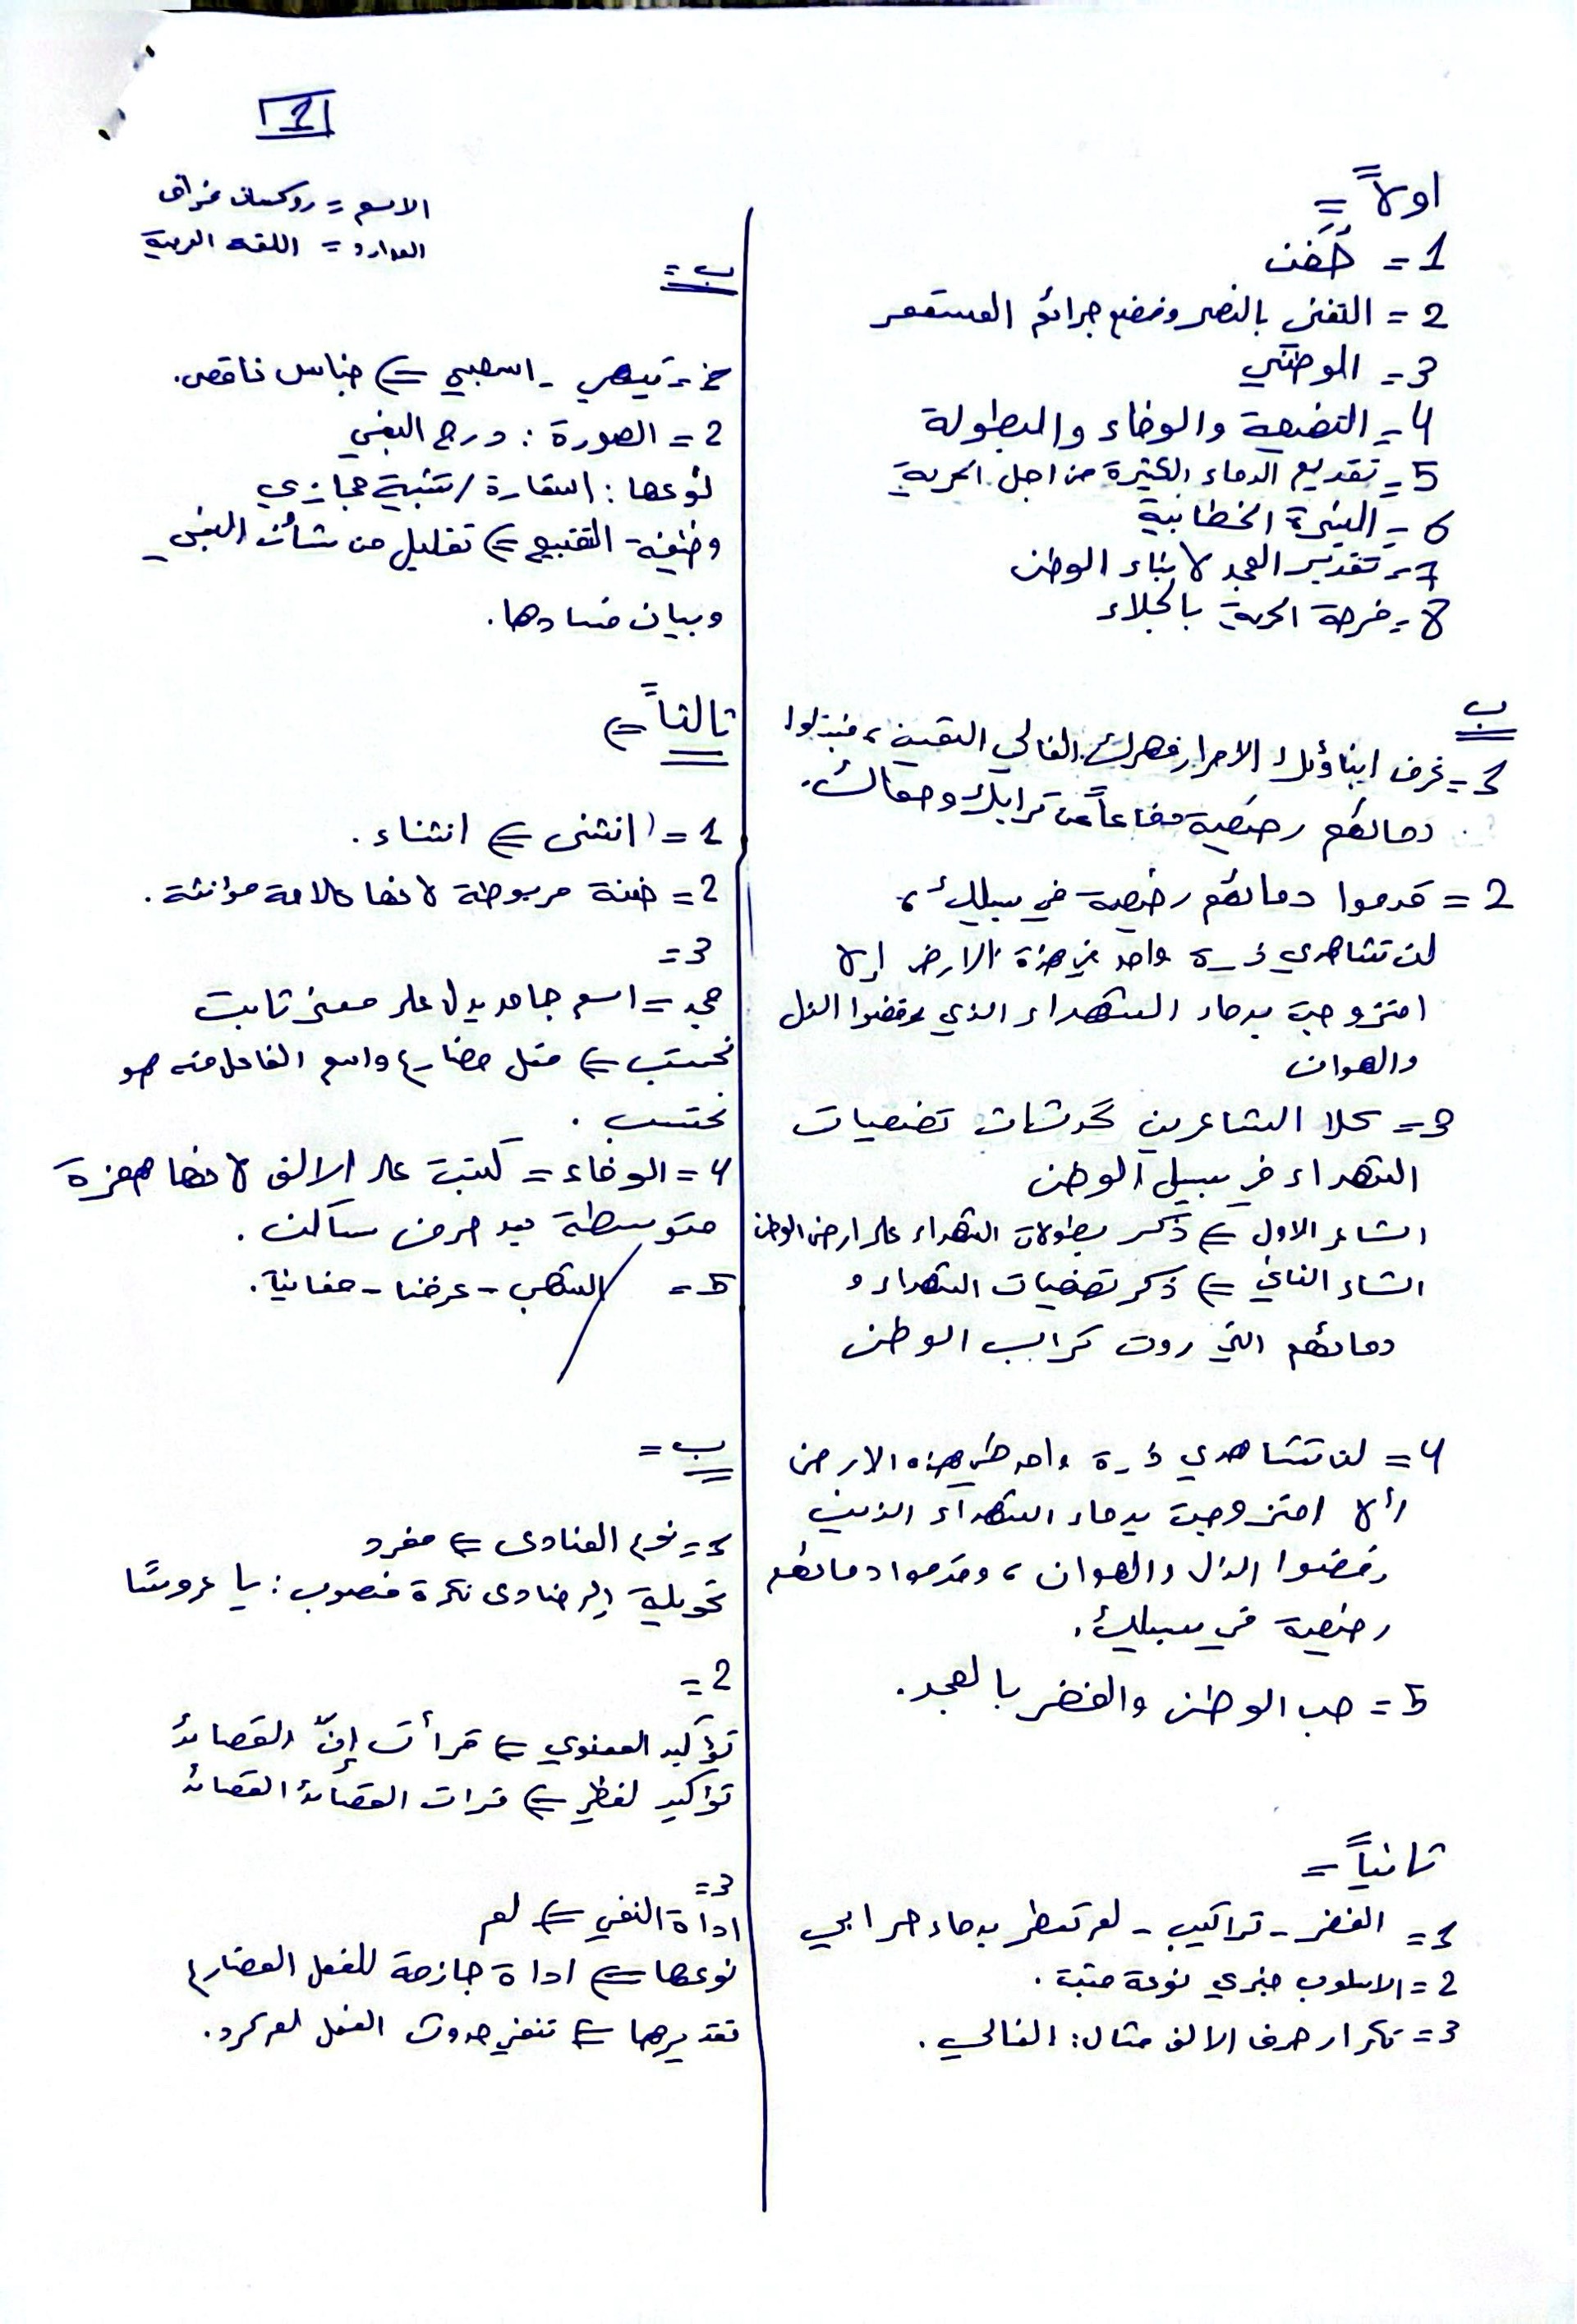 1
الاسم = روكسان
= اللغة العربية
اولاً =
1 =
2 = التغني بالنصر وفضح جرائم المستعمر
3 = الوطني
4 = التضحية والوفاء والبطولة
5 = تقديم الدماء الكثيرة من اجل الحرية
6 = النبرة الخطابية
7 = تقدير المجد لابناء الوطن
8 = فرحة الحرية بالجلاء
ب
1 = عرف ابناؤك الاحرار مهرك الغالي الثمين، فبذلوا
دمائهم رخيصة دفاعاً عن ترابك وحماك.
2 = قدموا دمائهم رخيصة في سبيلك،
لن تشاهدي ذرة واحد في هذة الارض إلا
امتزوجت بدماء الشهداء الذي رفضوا الذل
والهوان
3 = كلا الشاعرين تضحيات
الشهداء في سبيل الوطن
الشاعر الاول => ذكر بطولات الشهداء على ارض الوطن
الشاء الثاني => ذكر تضحيات الشهداء و
دمائهم التي روت الوطن
4 = لن تشاهدي ذرة واحد هذه الارض
إلا امتزوجت بدماء الشهداء الذين
رفضوا الذل والهوان، وقدموا دمائهم
رخيصة في سبيلك.
5 = حب الوطن والفخر بالمجد.
ثانياً =
1 = الفخر - تراكيب - لم تعطر بدماء حر ابي
2 = الاسلوب خبري نوعة مثبت.
3 = تكرار حرف الالف مثال: الغالي.
ب =
1 = تيهي - اسحبي => جناس ناقص.
2 = الصورة : درج البغي
نوعها : استعارة / تشبية مجازي
وظيفة - التقبيح => تقليل من شأن البغي -
وبيان فسادها.
ثالثاً =>
1 = انتشى => انتشاء.
2 = مربوطة لانها مؤنثة.
3 =
مجد = اسم جامد يدل على معنى ثابت
=> فعل مضارع واسم الفاعل منه هو
.
4 = الوفاء = كتبت على الالف لانها همزة
متوسطة بعد حرف ساكن.
5 = - عرفنا - .
ب =
1 = نوع المنادى => مفرد
تحويلة إلى منادى نكرة منصوب : يا عروسًا
2 =
توأكيد المعنوي => قرأت إنّ القصائد
توأكيد لفظي => قرات القصائد القصائد
3 =
اداة النفي => لم
نوعها => اداة جازمة للفعل المضارع
=> تنفي حدوث الفعل .